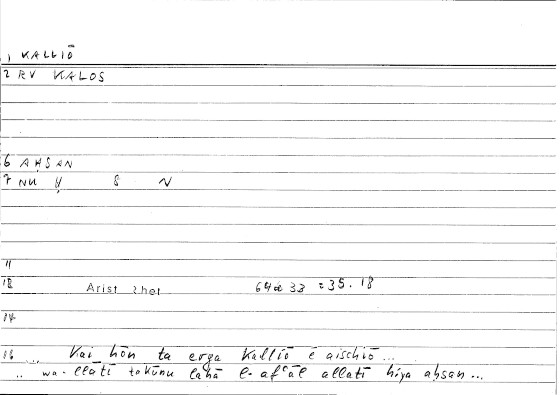 1 KALLIŌ
2 RV KALOS
6 AḤSAN
7 NU Ḥ S N
11
12 Arist Rhet 64a 33 = 35.18
14
16 ... Kai hōn ta erga Kalliō ē aischiō ...
.. wa-llatī takūnu lahā l-afʿāl allatī hiya aḥsan ...